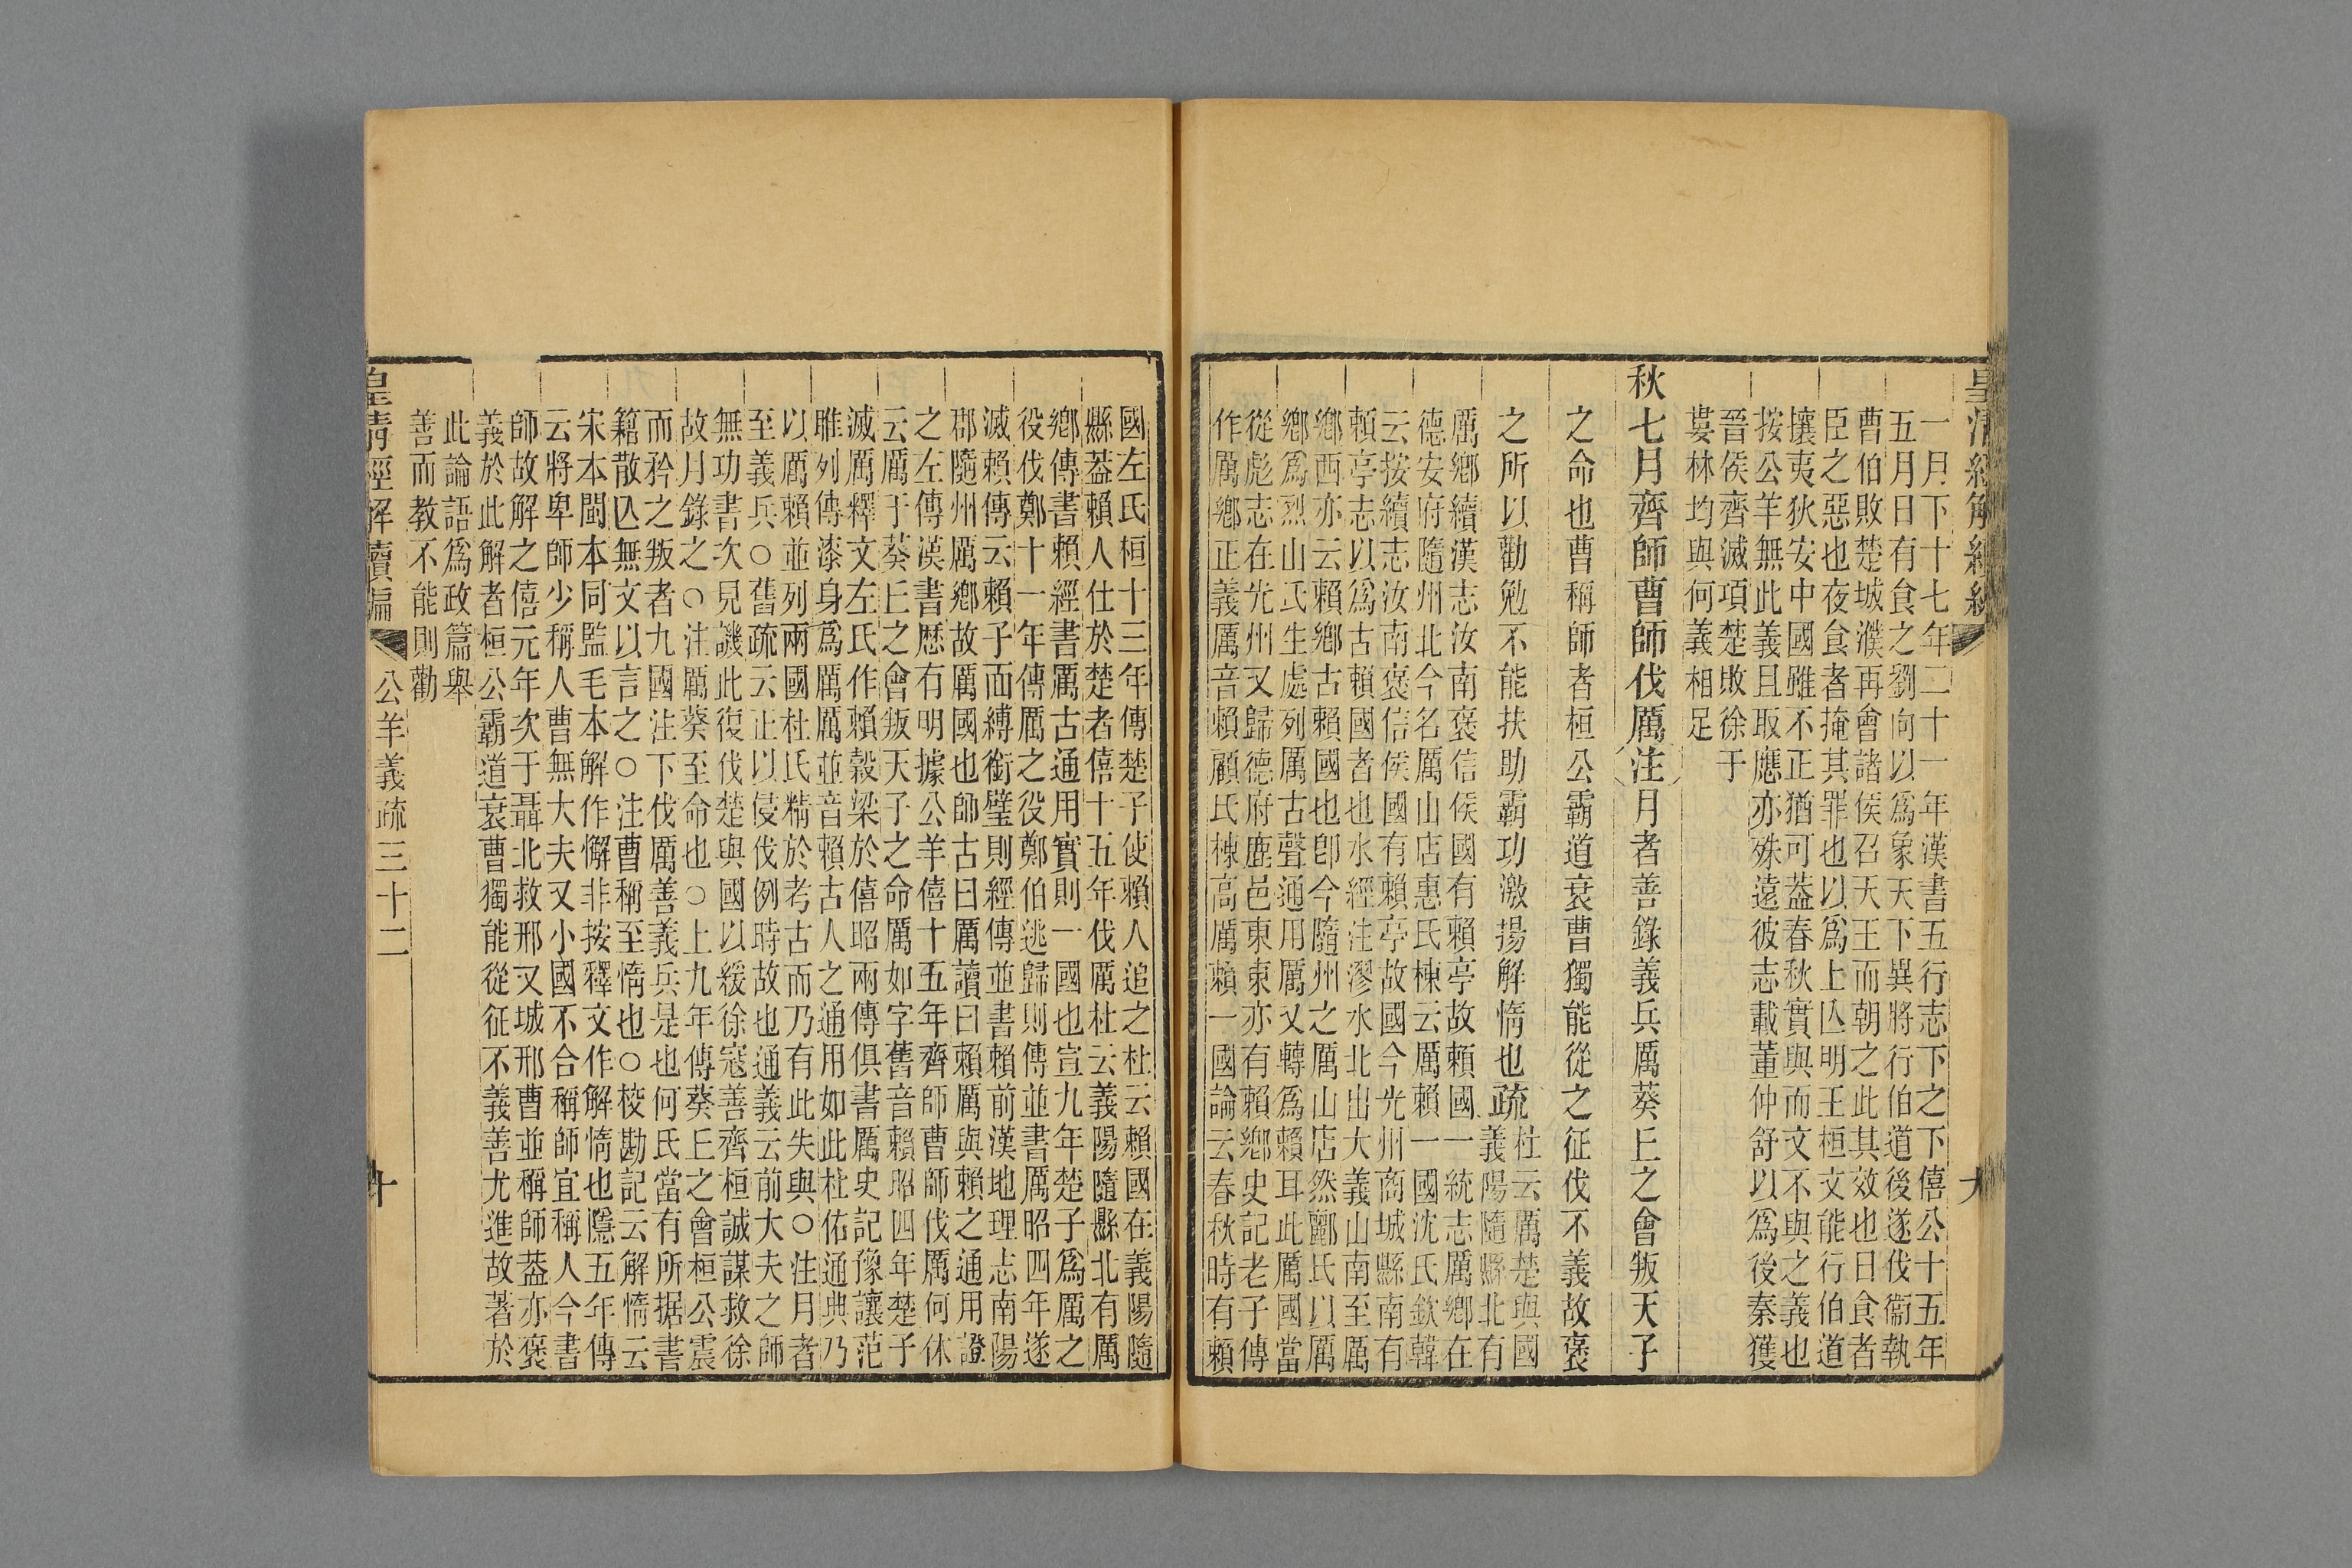 皇清經解續編
一月下十七年二十一年漢書五行志下之下僖公十五年
五月日有食之劉向以爲象天下異將行伯道後遂伐衞執
曹伯敗楚城濮再會諸侯召天王而朝之此其效也日食者
臣之惡也夜食者掩其罪也以爲上亾明王桓文能行伯道
攘夷狄安中國雖不正猶可葢春秋實與而文不與之義也
按公羊無此義且取應亦殊遠彼志載董仲舒以爲後秦獲
晉侯齊滅項楚敗徐于
婁林均與何義相足
秋七月齊師曹師伐厲注月者善錄義兵厲葵丘之會叛天子
之命也曹稱師者桓公霸道衰曹獨能從之征伐不義故褒
之所以勸勉不能扶助霸功激揚解惰也疏杜云厲楚與國
義陽隨縣北有
厲鄉續漢志汝南褒信侯國有賴亭故賴國一統志厲鄉在
德安府隨州北今名厲山店惠氏棟云厲賴一國沈氏欽韓
云按續志汝南褒信侯國有賴亭故國今光州商城縣南有
賴亭志以爲古賴國者也水經注漻水北出大義山南至厲
鄉西亦云賴鄉古賴國也卽今隨州之厲山店然酈氏以厲
鄉爲烈山氏生處列厲古聲通用厲又轉爲賴耳此厲國當
從彪志在光州又歸德府鹿邑東東亦有賴鄉史記老子傳
作厲鄉正義厲音賴顧氏棟高厲賴一國論云春秋時有賴
國左氏桓十三年傳楚子使賴人追之杜云賴國在義陽隨
縣葢賴人仕於楚者僖十五年伐厲杜云義陽隨縣北有厲
鄉傳書賴經書厲古通用實則一國也宣九年楚子爲厲之
役伐鄭十一年傳厲之役鄭伯逃歸則傳並書厲昭四年遂
滅賴傳云賴子面縛銜璧則經傳並書賴前漢地理志南陽
郡隨州厲鄉故厲國也師古曰厲讀曰賴厲與賴之通用證
之左傳漢書歷有明據公羊僖十五年齊師曹師伐厲何休
云厲于葵丘之會叛天子之命厲如字舊音賴昭四年楚子
滅厲釋文左氏作賴穀梁於僖昭兩傳俱書厲史記豫讓范
睢列傳漆身爲厲厲並音賴古人之通用如此杜佑通典乃
以厲賴並列兩國杜氏精於考古而乃有此失與○注月者
至義兵○舊疏云正以侵伐例時故也通義云前大夫之師
無功書次見譏此復伐楚與國以緩徐寇善齊桓誠謀救徐
故月錄之○注厲葵至命也○上九年傳葵丘之會桓公震
而矜之叛者九國注下伐厲善義兵是也何氏當有所据書
籍散亾無文以言之○注曹稱至惰也○校勘記云解惰云
宋本閩本同監毛本解作懈非按釋文作解惰也隱五年傳
云將卑師少稱人曹無大夫又小國不合稱師宜稱人今書
師故解之僖元年次于聶北救邢又城邢曹並稱師葢亦褒
義於此解者桓公霸道衰曹獨能從征不義善尤進故著於
此論語爲政篇舉
善而教不能則勸
皇清經解續編
公羊義疏三十二
十